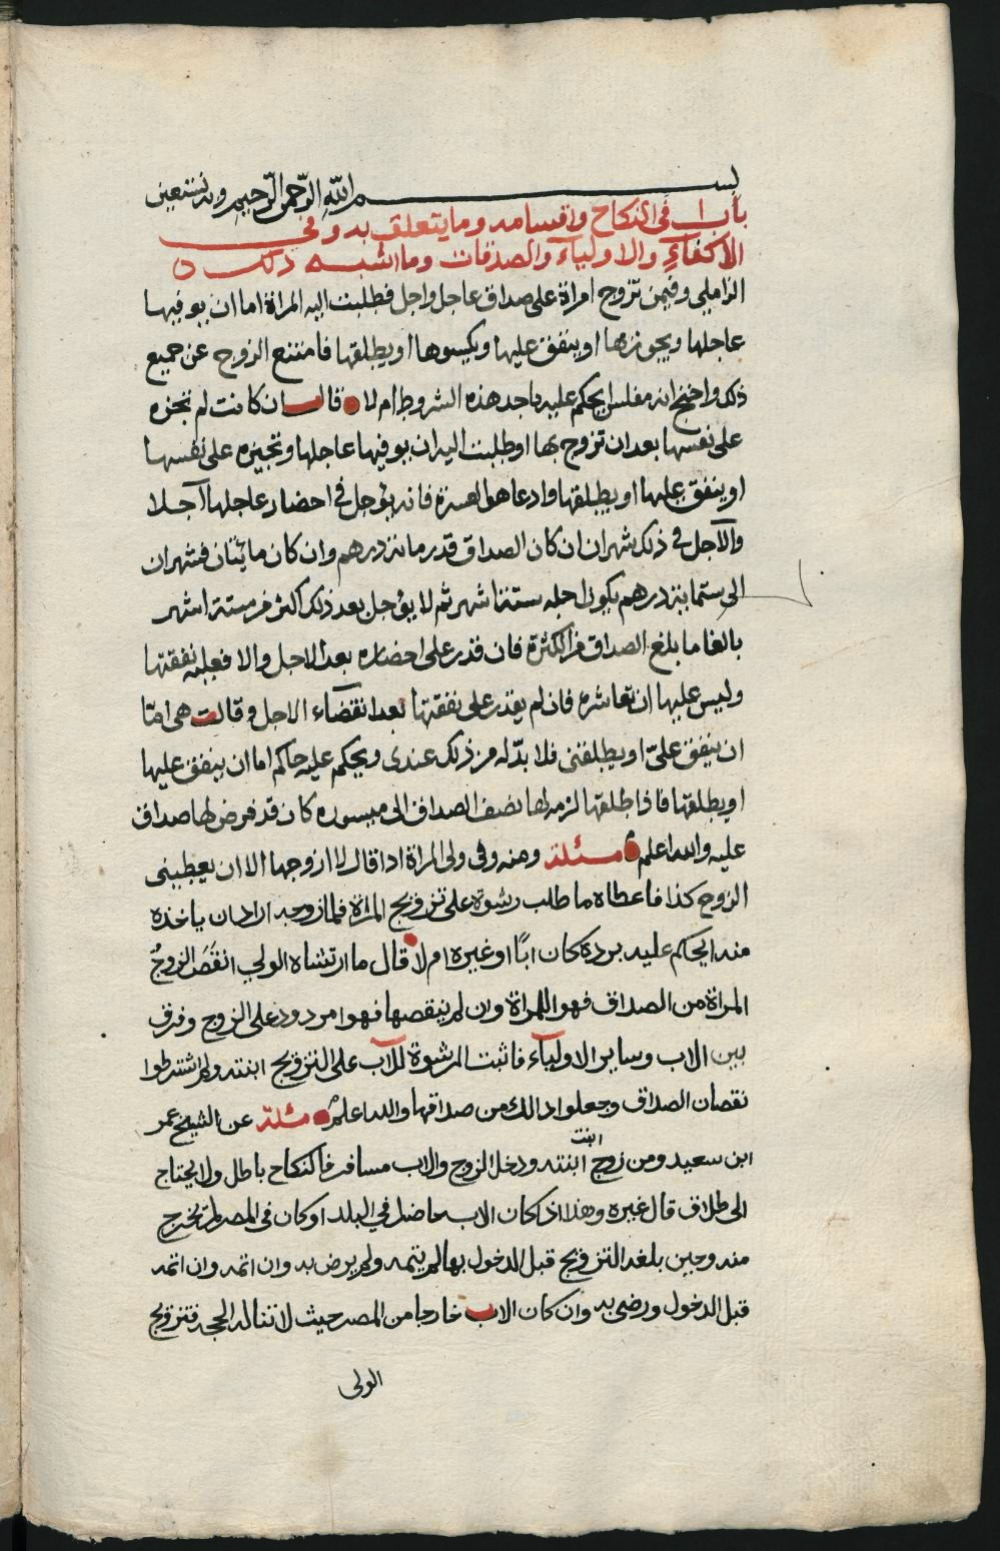 بسم الله الرحمن الرحيم وبه نستعين
باب في النكاح واقسامه وما يتعلق به وفي
الاكفاء والاولياء والصدقات وما اشبه ذلك
الزاملي وفيمن تزوج امراة على صداق عاجل واجل فطلبت اليه المراة اما ان يوفيها
عاجلها ويجوزها او ينفق عليها ويكسوها او يطلقها فامتنع الزوج عن جميع
ذلك واحتج انه مفلس ايحكم عليه باحد هذه الشروط ام لا قال ان كانت لم تجزه
على نفسها بعد ان تزوج بها او طلبت اليه ان يوفيها عاجلها وتجيزه على نفسها
او ينفق عليها او يطلقها وادعا هو العسرة فانه يؤجل في احضار عاجلها اجلا
والآجل في ذلك شهران ان كان الصداق قدر مائة درهم وان كان مائتان فشهران
الى ستماية درهم يكون اجله ستة اشهر ثم لا يؤجل بعد ذلك اكثر من ستة اشهر
بالغا ما بلغ الصداق من الكثرة فان قدر على احضاره بعد الاجل والا فعليه نفقتها
وليس عليها ان تعاشره فان لم يقدر على نفقتها بعد انقضاء الاجل وقالت هي اما
ان ينفق علي او يطلقني فلا بد له من ذلك عندى ويحكم عليه حاكم اما ان ينفق عليها
او يطلقها فاذا طلقها لزمه لها نصف الصداق الى ميسوره كان قد فرض لها صداق
عليه والله اعلم مسئلة ومنه وفى ولى المراة اذا قال لا ازوجها الا ان يعطينى
الزوج كذا فاعطاه ما طلب رشوة على تزويج المراة فلما زوجه اراد ان ياخذه
منه ايحكم عليه برده كان ابًا او غيره ام لا قال ما ارتشاه الولي انقَصَ الزوجُ
المراة من الصداق فهو للمراة وان لم ينقصها فهو مردود على الزوج وفرق
بين الاب وساير الاولياء فاثبت الرشوة للاب على التزويج ابنته ولو اشترطوا
نقصان الصداق وجعلوا ذالك من صداقها والله اعلم مسئلة عن الشيخ عمر
ابن سعيد ومن زوج ابنت ابنته ودخل الزوج والاب مسافر فالنكاح باطل ولا يحتاج
الى طلاق قال غيره وهذا اذا كان الاب حاضرا في البلد او كان في المصر لم تخرج
منه وحين بلغه التزويج قبل الدخول بها لم يتمه ولم يرض به وان اتمه وان اتمه
قبل الدخول ورضي به وان كان الاب خارجا من المصر حيث لا تناله الحجة فتزويج
الولى